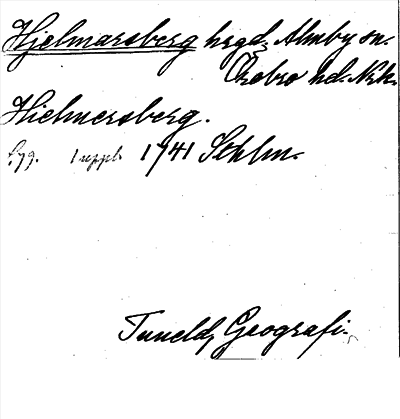 Hjelmarsberg hrgd, Almby sn.
Örebro hd. Nrk.
Hielmersberg.
1 uppl. 1741 Sthlm.
Tuneld, Geografi.